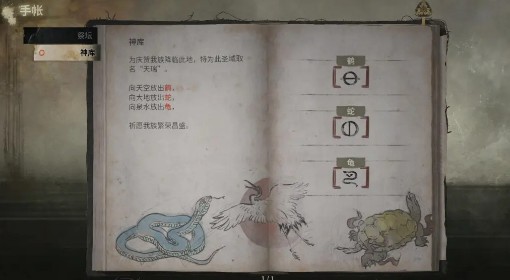 手帐
祭坛
神库
神库
为庆贺我族降临此地，特为此圣域取
名“天瑞”。
向天空放出鹤，
向大地放出蛇，
向泉水放出龟，
祈愿我族繁荣昌盛。
鹤
蛇
龟
1/1